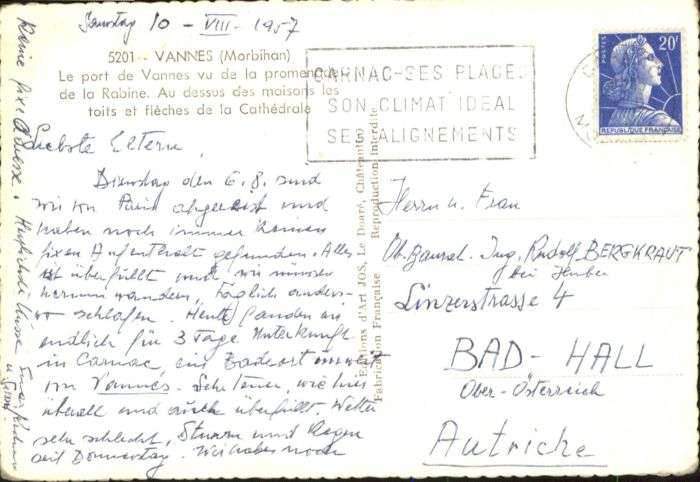 Samstag 10 - VIII - 1957
5201 - VANNES (Morbihan)
Le port de Vannes vu de la promenade
de la Rabine. Au dessus des maisons les
toits et flèches de la Cathédrale
CARNAC-SES PLAGES
SON CLIMAT IDEAL
SES ALIGNEMENTS
POSTES
20F
REPUBLIQUE FRANÇAISE
Liebste Eltern,
Dienstag den 6.8. sind
wir von Paris abgereist und
haben noch immer keinen
fixen Aufenthalt gefunden. Alles
ist überfüllt und wir müssen
herumwandern, täglich anders-
wo schlafen. Heute fanden wir
endlich für 3 Tage Unterkunft
in Carnac, ein Badeort unweit
von Vannes. Sehr teuer, wie hier
überall und auch überfüllt. Wetter
sehr schlecht, Sturm und Regen
seit Donnerstag. Wir haben noch
keine fixe Adresse. Herzlichste Küsse
Editions d'Art JOS, Le Doaré, Châteaulin
Fabrication Française Reproduction Interdite
Herrn u. Frau
Ob. Baurat Ing. Rudolf BERGKRAUT
bei Huber
Linzerstrasse 4
BAD-HALL
Ober-Österreich
Autriche